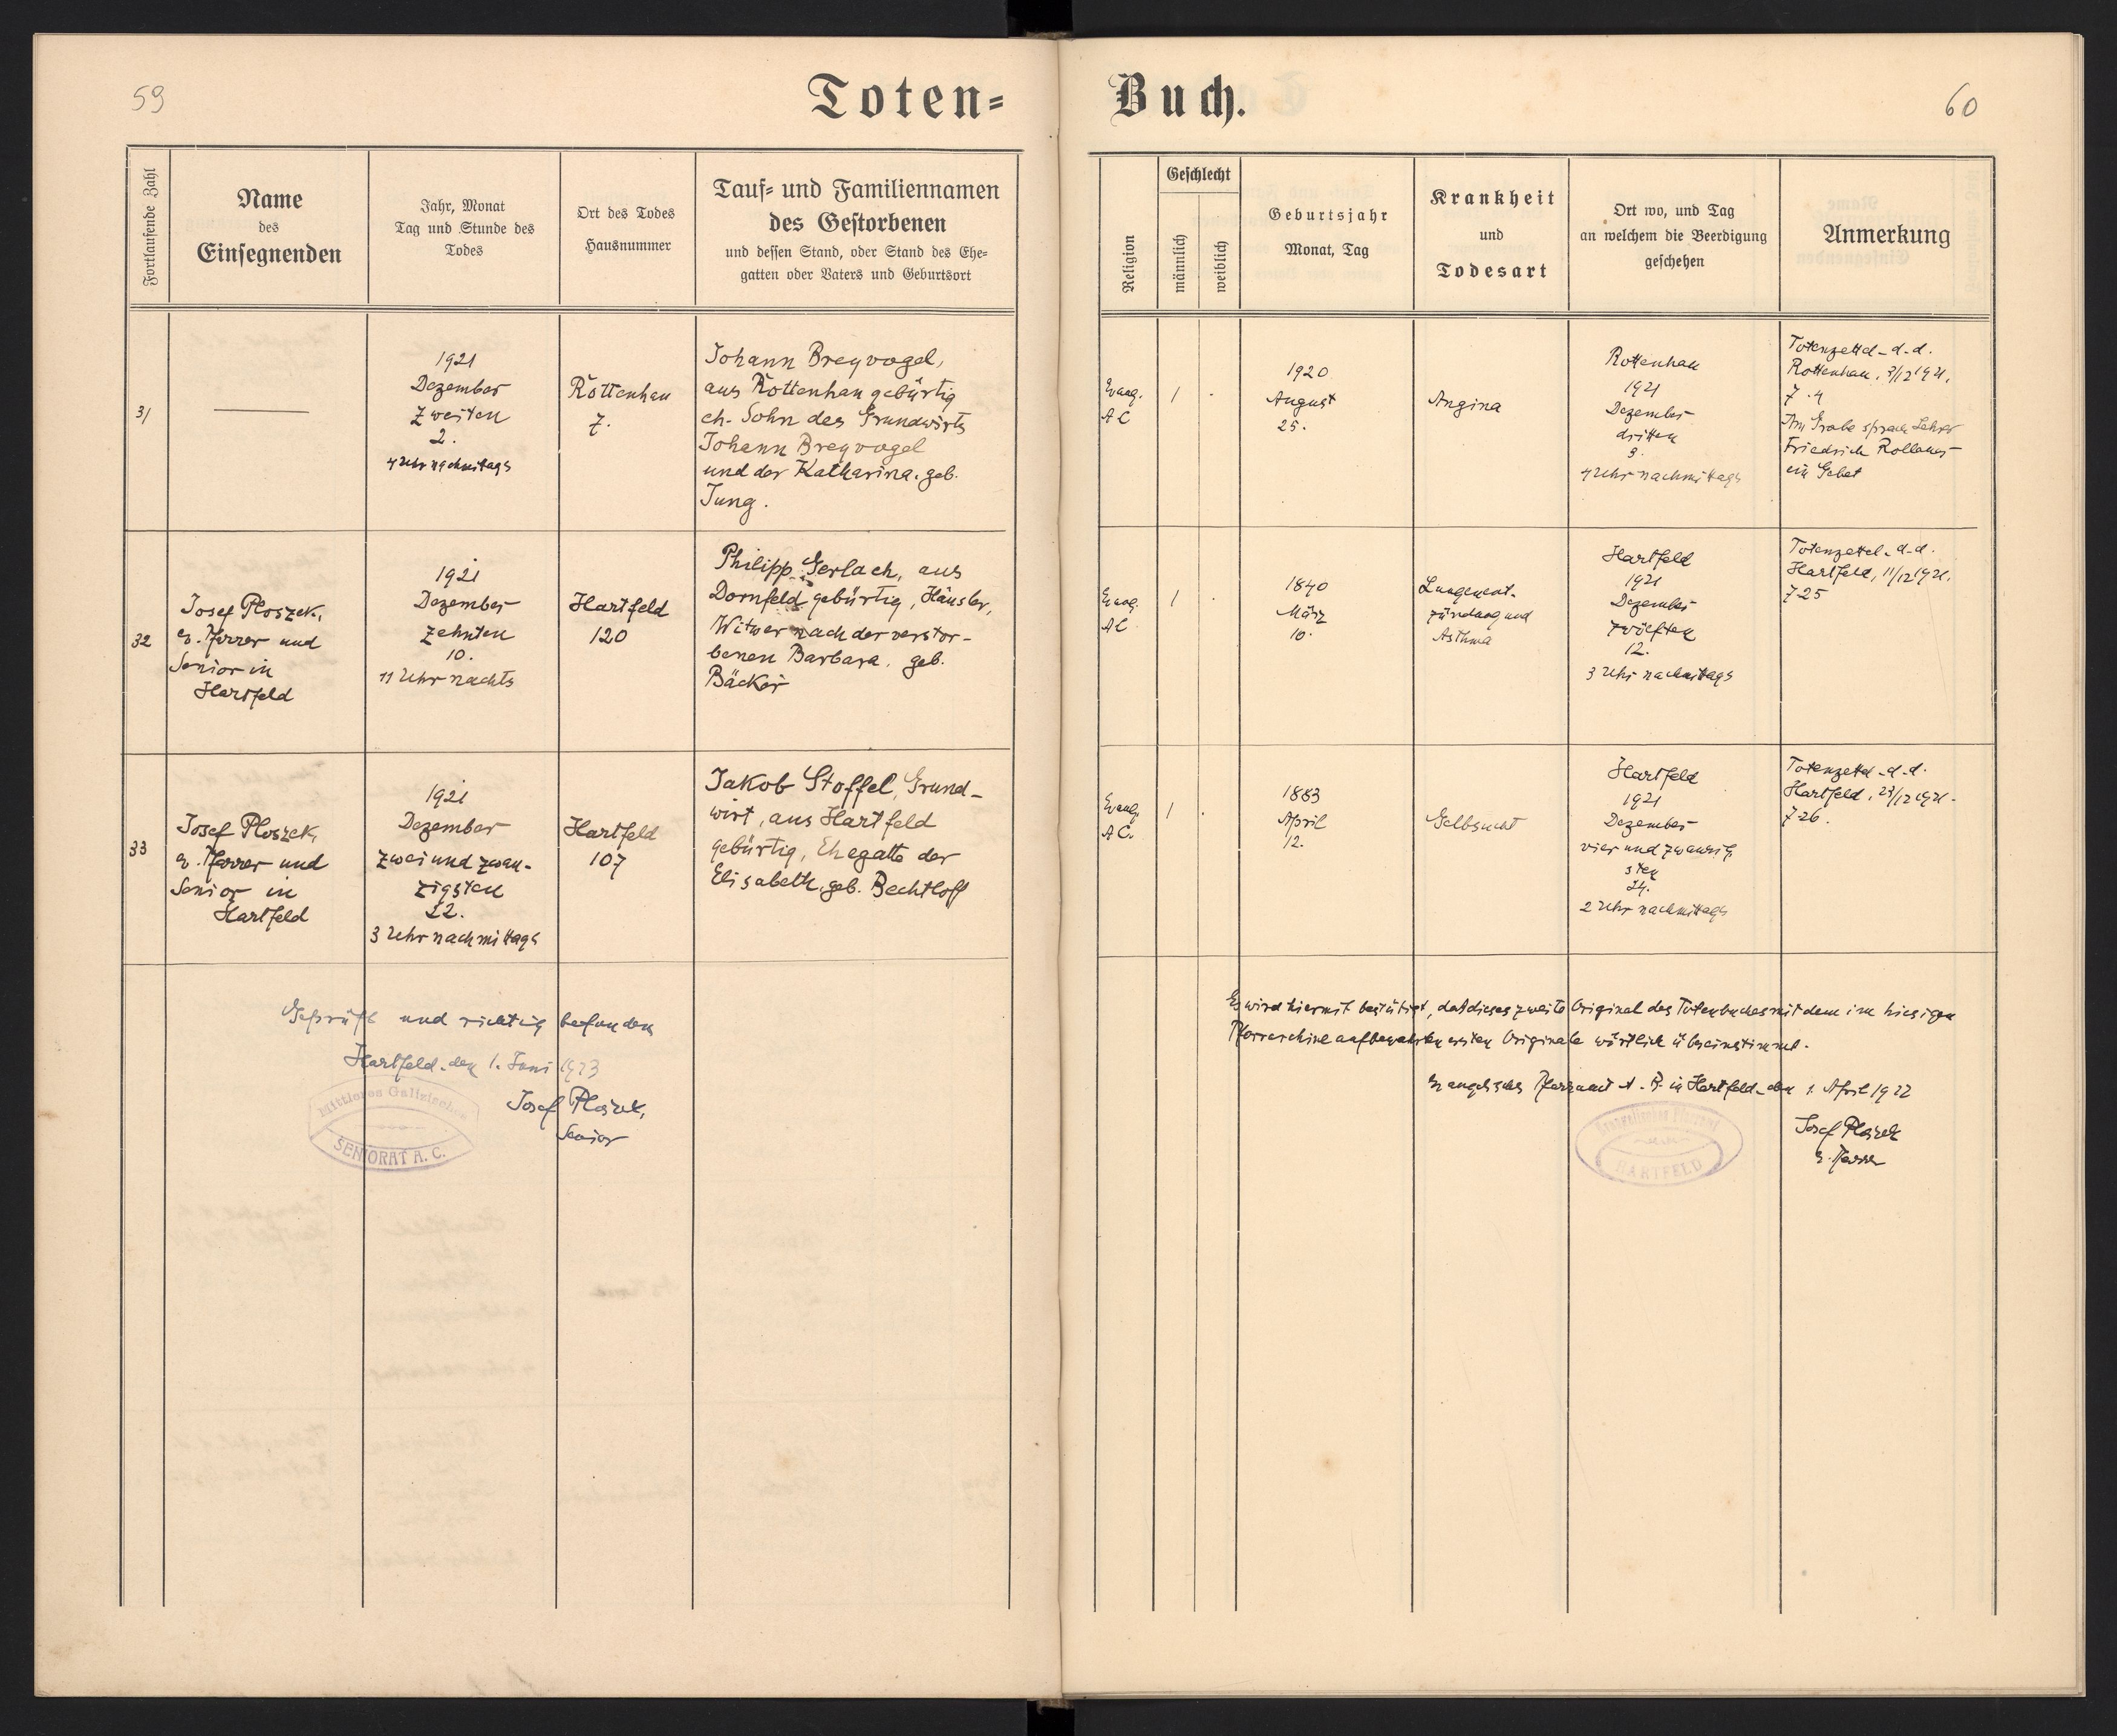 59
Toten=
Fortlaufende Zahl
Name
des
Einsegnenden
Jahr, Monat
Tag und Stunde des
Todes
Ort des Todes
Hausnummer
Tauf= und Familiennamen
des Gestorbenen
und dessen Stand, oder Stand des Ehe=
gatten oder Vaters und Geburtsort
31
1921
Dezember
zweiten
2.
4 Uhr nachmitags
Rottenhan
7.
Johann Breyvogel,
aus Rottenhan gebürtig
eh. Sohn des Grundwirts
Johann Breyvogel
und der Katharina, geb.
Jung.
32
Josef Ploszek,
ev. Pfarrer und
Senior in
Hartfeld
1921
Dezember
zehnten
10.
11 Uhr nachts
Hartfeld
120
Philipp Gerlach, aus
Dornfeld gebürtig, Häusler,
Witwer nach der verstor-
benen Barbara, geb.
Bäcker
33
Josef Ploszek,
ev. Pfarrer und
Senior in
Hartfeld
1921
Dezember
zwei und zwan-
zigsten
22.
3 Uhr nachmittags
Hartfeld
107
Jakob Stoffel, Grund-
wirt, aus Hartfeld
gebürtig, Ehegatte der
Elisabeth, geb. Bechtloff
Geprüft und richtig befunden
Hartfeld, den 1. Juni 1923
Josef Ploszek,
Senior
Mittleres Galizisches
SENIORAT A. C.
Buch.
60
Religion
Geschlecht
männlich
weiblich
Geburtsjahr
Monat, Tag
Krankheit
und
Todesart
Ort wo, und Tag
an welchem die Beerdigung
geschehen
Anmerkung
Evang.
A C
1
1920
August
25.
Angina
Rottenhan
1921
Dezember
dritten
3.
4 Uhr nachmittags
Totenzettel d. d.
Rottenhan, 3/12 1921.
Z. 4
Am Grabe sprach Lehrer
Friedrich
ein Gebet
Evang.
AC
1
1840
März
10.
Lungenent-
zündung und
Asthma
Hartfeld
1921
Dezember
zwölften
12.
3 Uhr nachmittags
Totenzettel d. d.
Hartfeld, 11/12 1921.
Z 25
Evang.
A C.
1
1883
April
12.
Gelbsucht
Hartfeld
1921
Dezember
vier und zwanzig
sten
24.
2 Uhr nachmittags
Totenzettel d. d.
Hartfeld, 23/12 1921.
Z 26.
Es wird hiermit bestätigt, daß dieses zweite Original des Totenbuches mit dem im hiesigen
Pfarrarchive aufbewahrten ersten Originale wörtlich übereinstimmt.
Evangelisches Pfarramt A. B. in Hartfeld, den 1. April 1922
Josef Ploszek
ev. Pfarrer
Evangelisches Pfarramt
HARTFELD